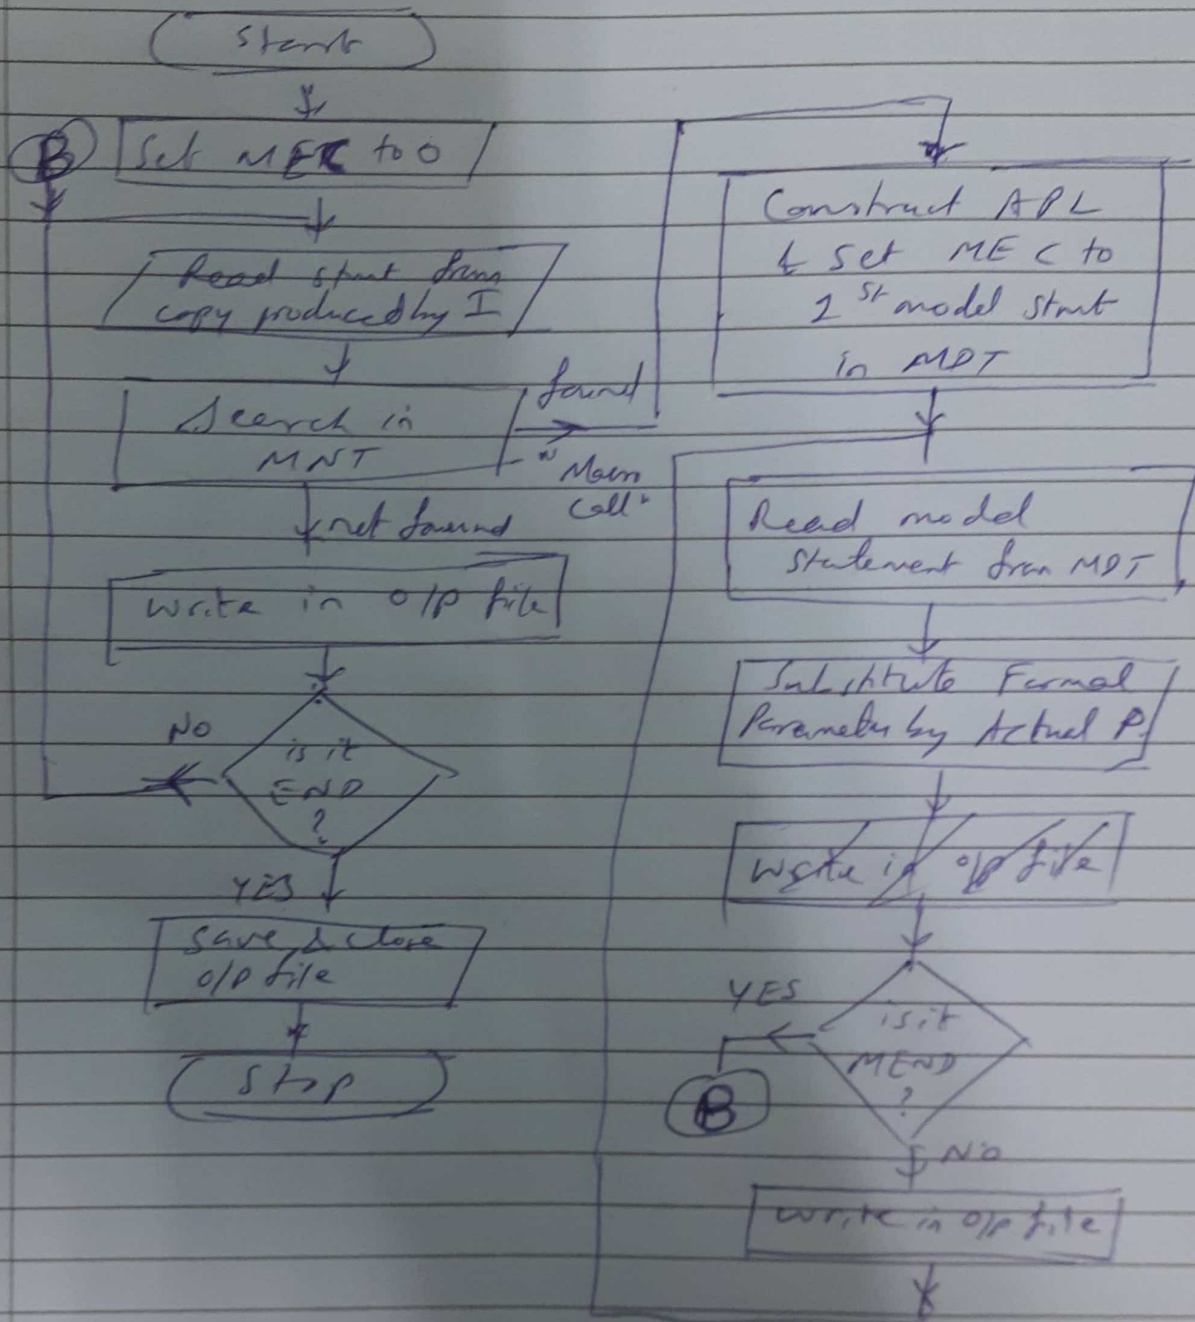 Start
B
Set MEC to 0
Read stmt from
copy produced by I
Search in
MNT
found
"Macro
Call"
not found
Write in O/P file
is it
END
?
NO
YES
Save & close
O/P file
Stop
Construct APL
& Set MEC to
1st model stmt
in MDT
Read model
Statement from MDT
Substitute Formal
Parameter by Actual P.
Write in O/P file
is it
MEND
?
YES
B
NO
Write in O/P file